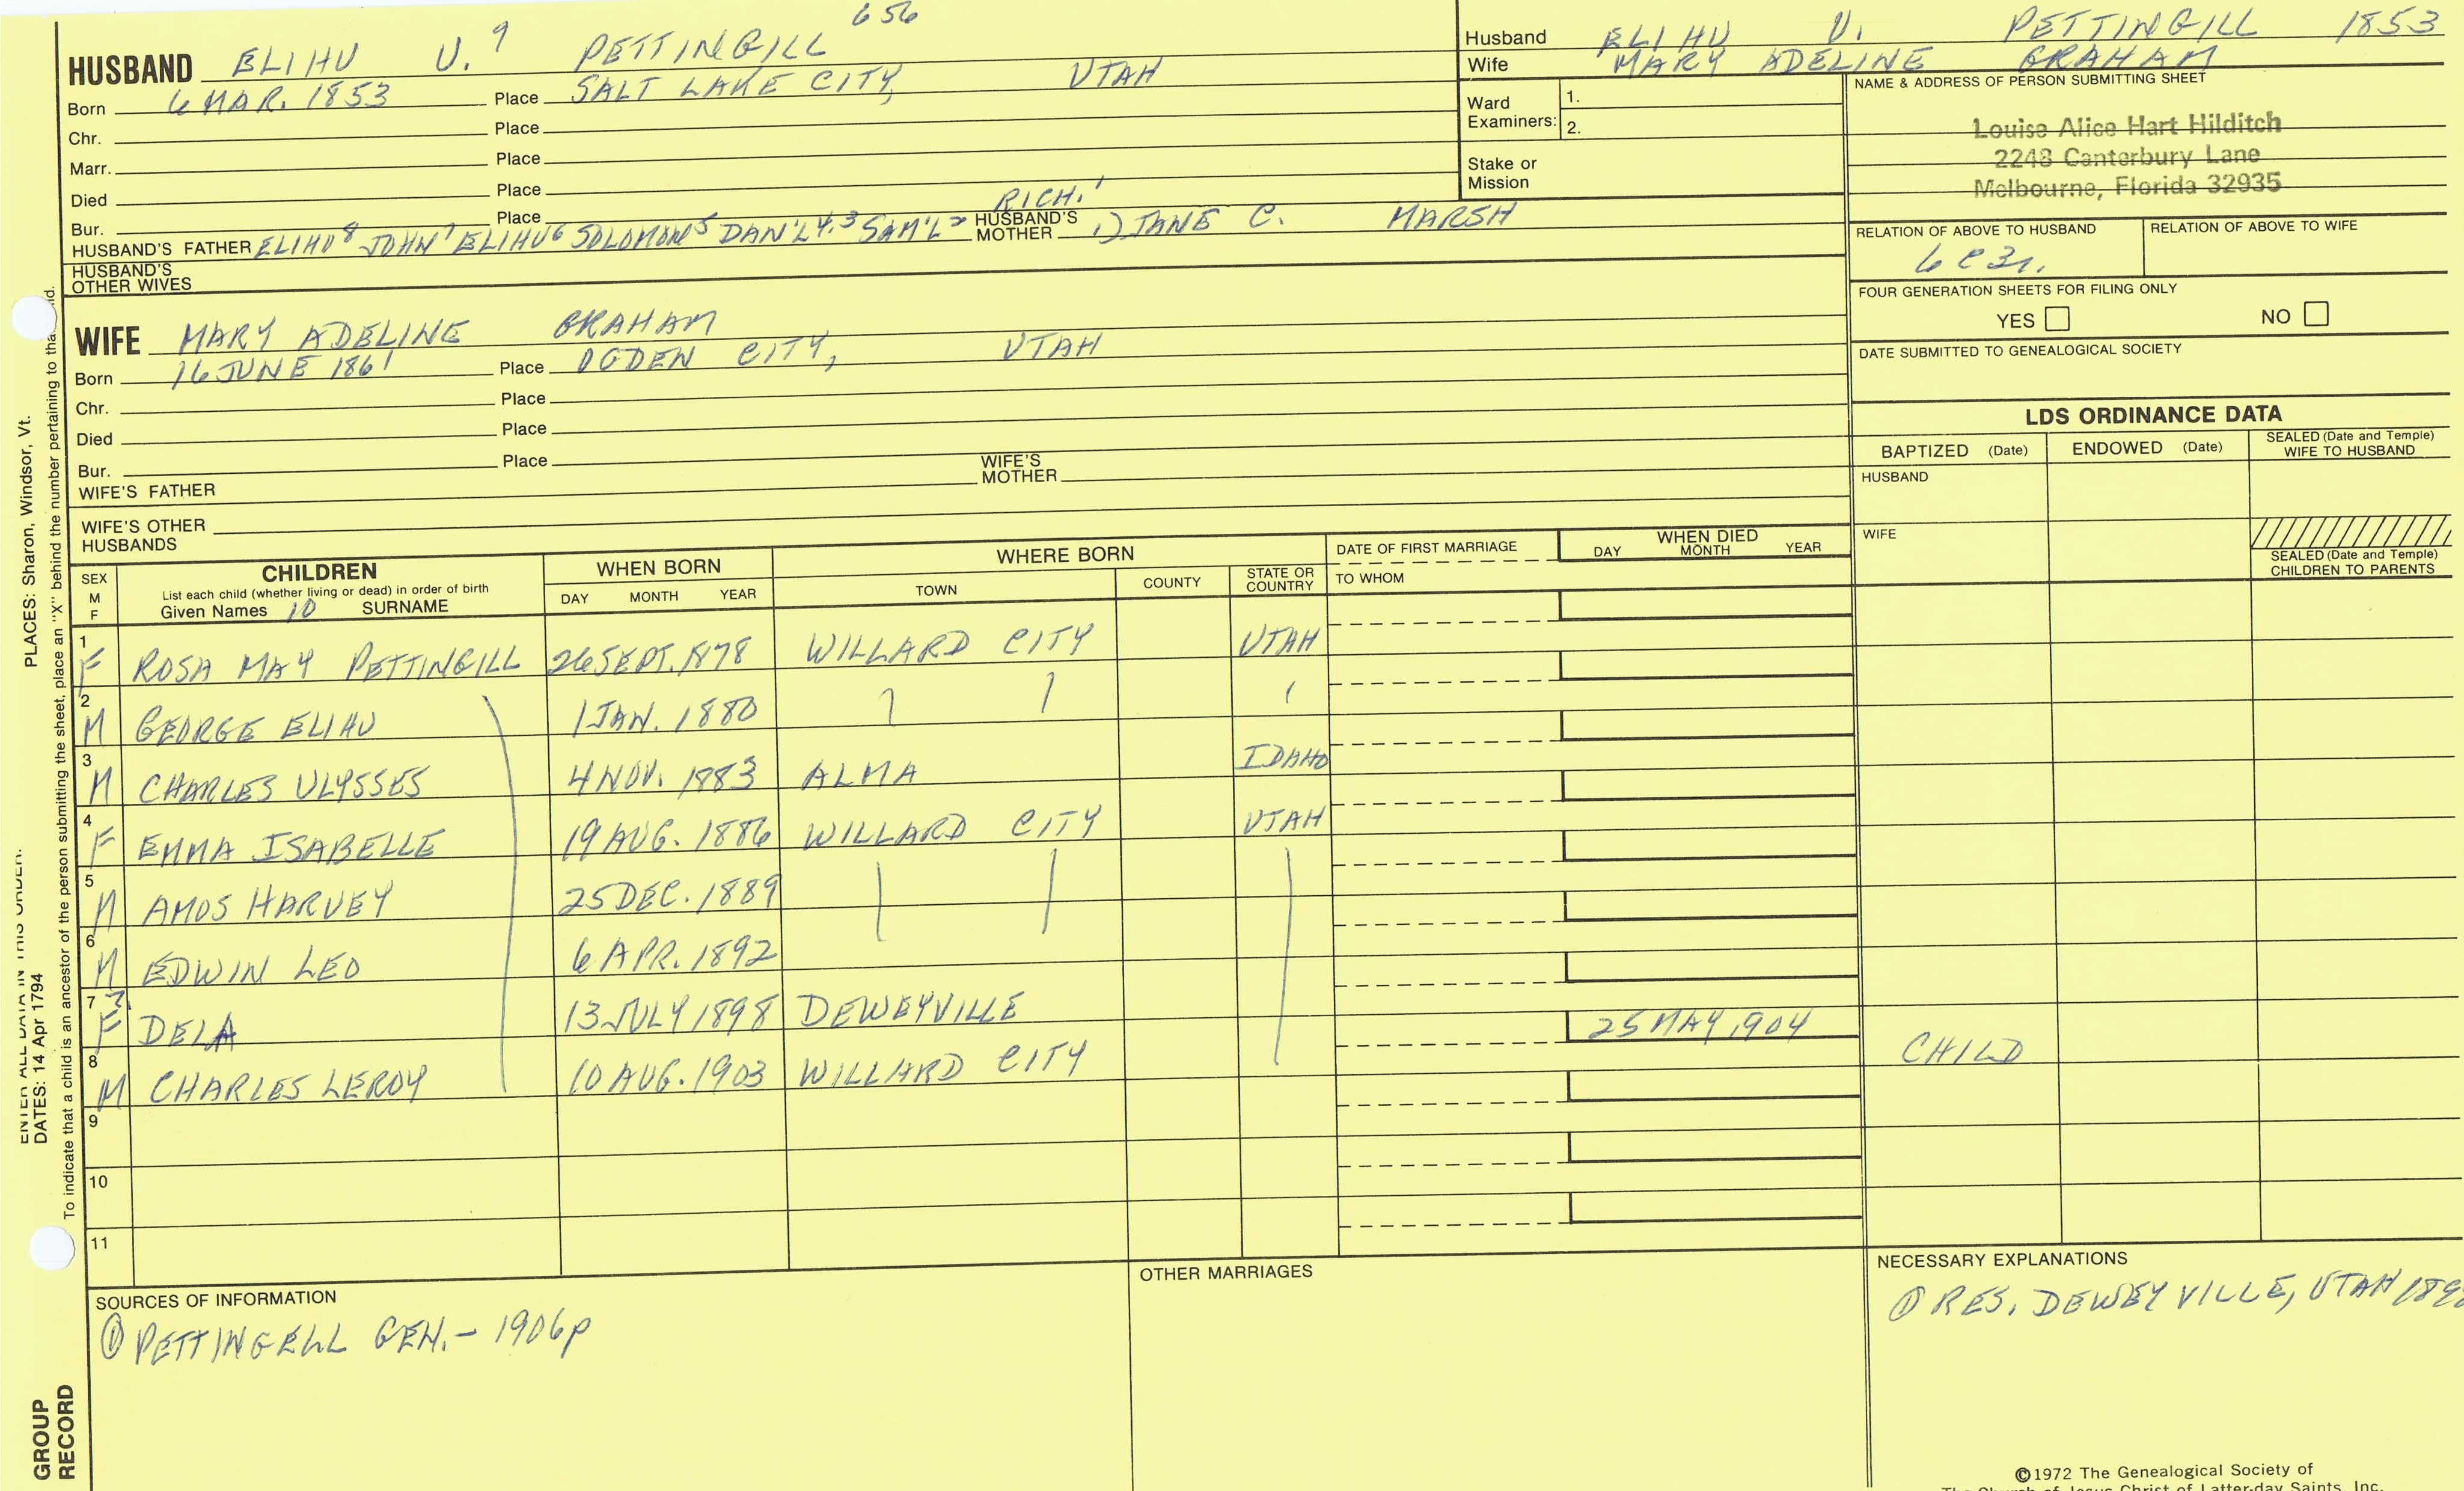 656
HUSBAND ELIHU U.⁹ PETTINGILL
Born 6 MAR. 1853 Place SALT LAKE CITY, UTAH
Chr. Place
Marr. Place
Died Place
Bur. Place
RICH.¹
HUSBAND'S FATHER ELIHU⁸ JOHN⁷ ELIHU⁶ SOLOMON⁵ DAN'L⁴,³ SAM'L² HUSBAND'S MOTHER 1) JANE C. MARSH
HUSBAND'S OTHER WIVES
WIFE MARY ADELINE GRAHAM
Born 16 JUNE 1861 Place OGDEN CITY, UTAH
Chr. Place
Died Place
Bur. Place
WIFE'S FATHER WIFE'S MOTHER
WIFE'S OTHER HUSBANDS
Husband ELIHU U. PETTINGILL 1853
Wife MARY ADELINE GRAHAM
Ward Examiners: 1.
2.
Stake or Mission
NAME & ADDRESS OF PERSON SUBMITTING SHEET
Louise Alice Hart Hilditch
2248 Canterbury Lane
Melbourne, Florida 32935
RELATION OF ABOVE TO HUSBAND RELATION OF ABOVE TO WIFE
6C3r.
FOUR GENERATION SHEETS FOR FILING ONLY
YES NO
DATE SUBMITTED TO GENEALOGICAL SOCIETY
LDS ORDINANCE DATA
BAPTIZED (Date) ENDOWED (Date) SEALED (Date and Temple) WIFE TO HUSBAND
HUSBAND
WIFE
SEALED (Date and Temple) CHILDREN TO PARENTS
SEX M F
CHILDREN
List each child (whether living or dead) in order of birth
Given Names 10 SURNAME
WHEN BORN
DAY MONTH YEAR
WHERE BORN
TOWN COUNTY STATE OR COUNTRY
DATE OF FIRST MARRIAGE
TO WHOM
WHEN DIED
DAY MONTH YEAR
1 F ROSA MAY PETTINGILL 26 SEPT. 1878 WILLARD CITY UTAH
2 M GEORGE ELIHU 1 JAN. 1880
3 M CHARLES ULYSSES 4 NOV. 1883 ALMA IDAHO
4 F EMMA ISABELLE 19 AUG. 1886 WILLARD CITY UTAH
5 M AMOS HARVEY 25 DEC. 1889
6 M EDWIN LEO 6 APR. 1892
7 F DELA 13 JULY 1898 DEWEYVILLE
8 M CHARLES LEROY 10 AUG. 1903 WILLARD CITY 25 MAY 1904 CHILD
9
10
11
SOURCES OF INFORMATION
① PETTINGELL GEN. - 1906p
OTHER MARRIAGES
NECESSARY EXPLANATIONS
① RES. DEWEYVILLE, UTAH
©1972 The Genealogical Society of
The Church of Jesus Christ of Latter-day Saints, Inc.
PLACES: Sharon, Windsor, Vt.
ENTER ALL DATA IN THIS ORDER:
DATES: 14 Apr 1794
To indicate that a child is an ancestor of the person submitting the sheet, place an "X" behind the number pertaining to that child.
GROUP
RECORD